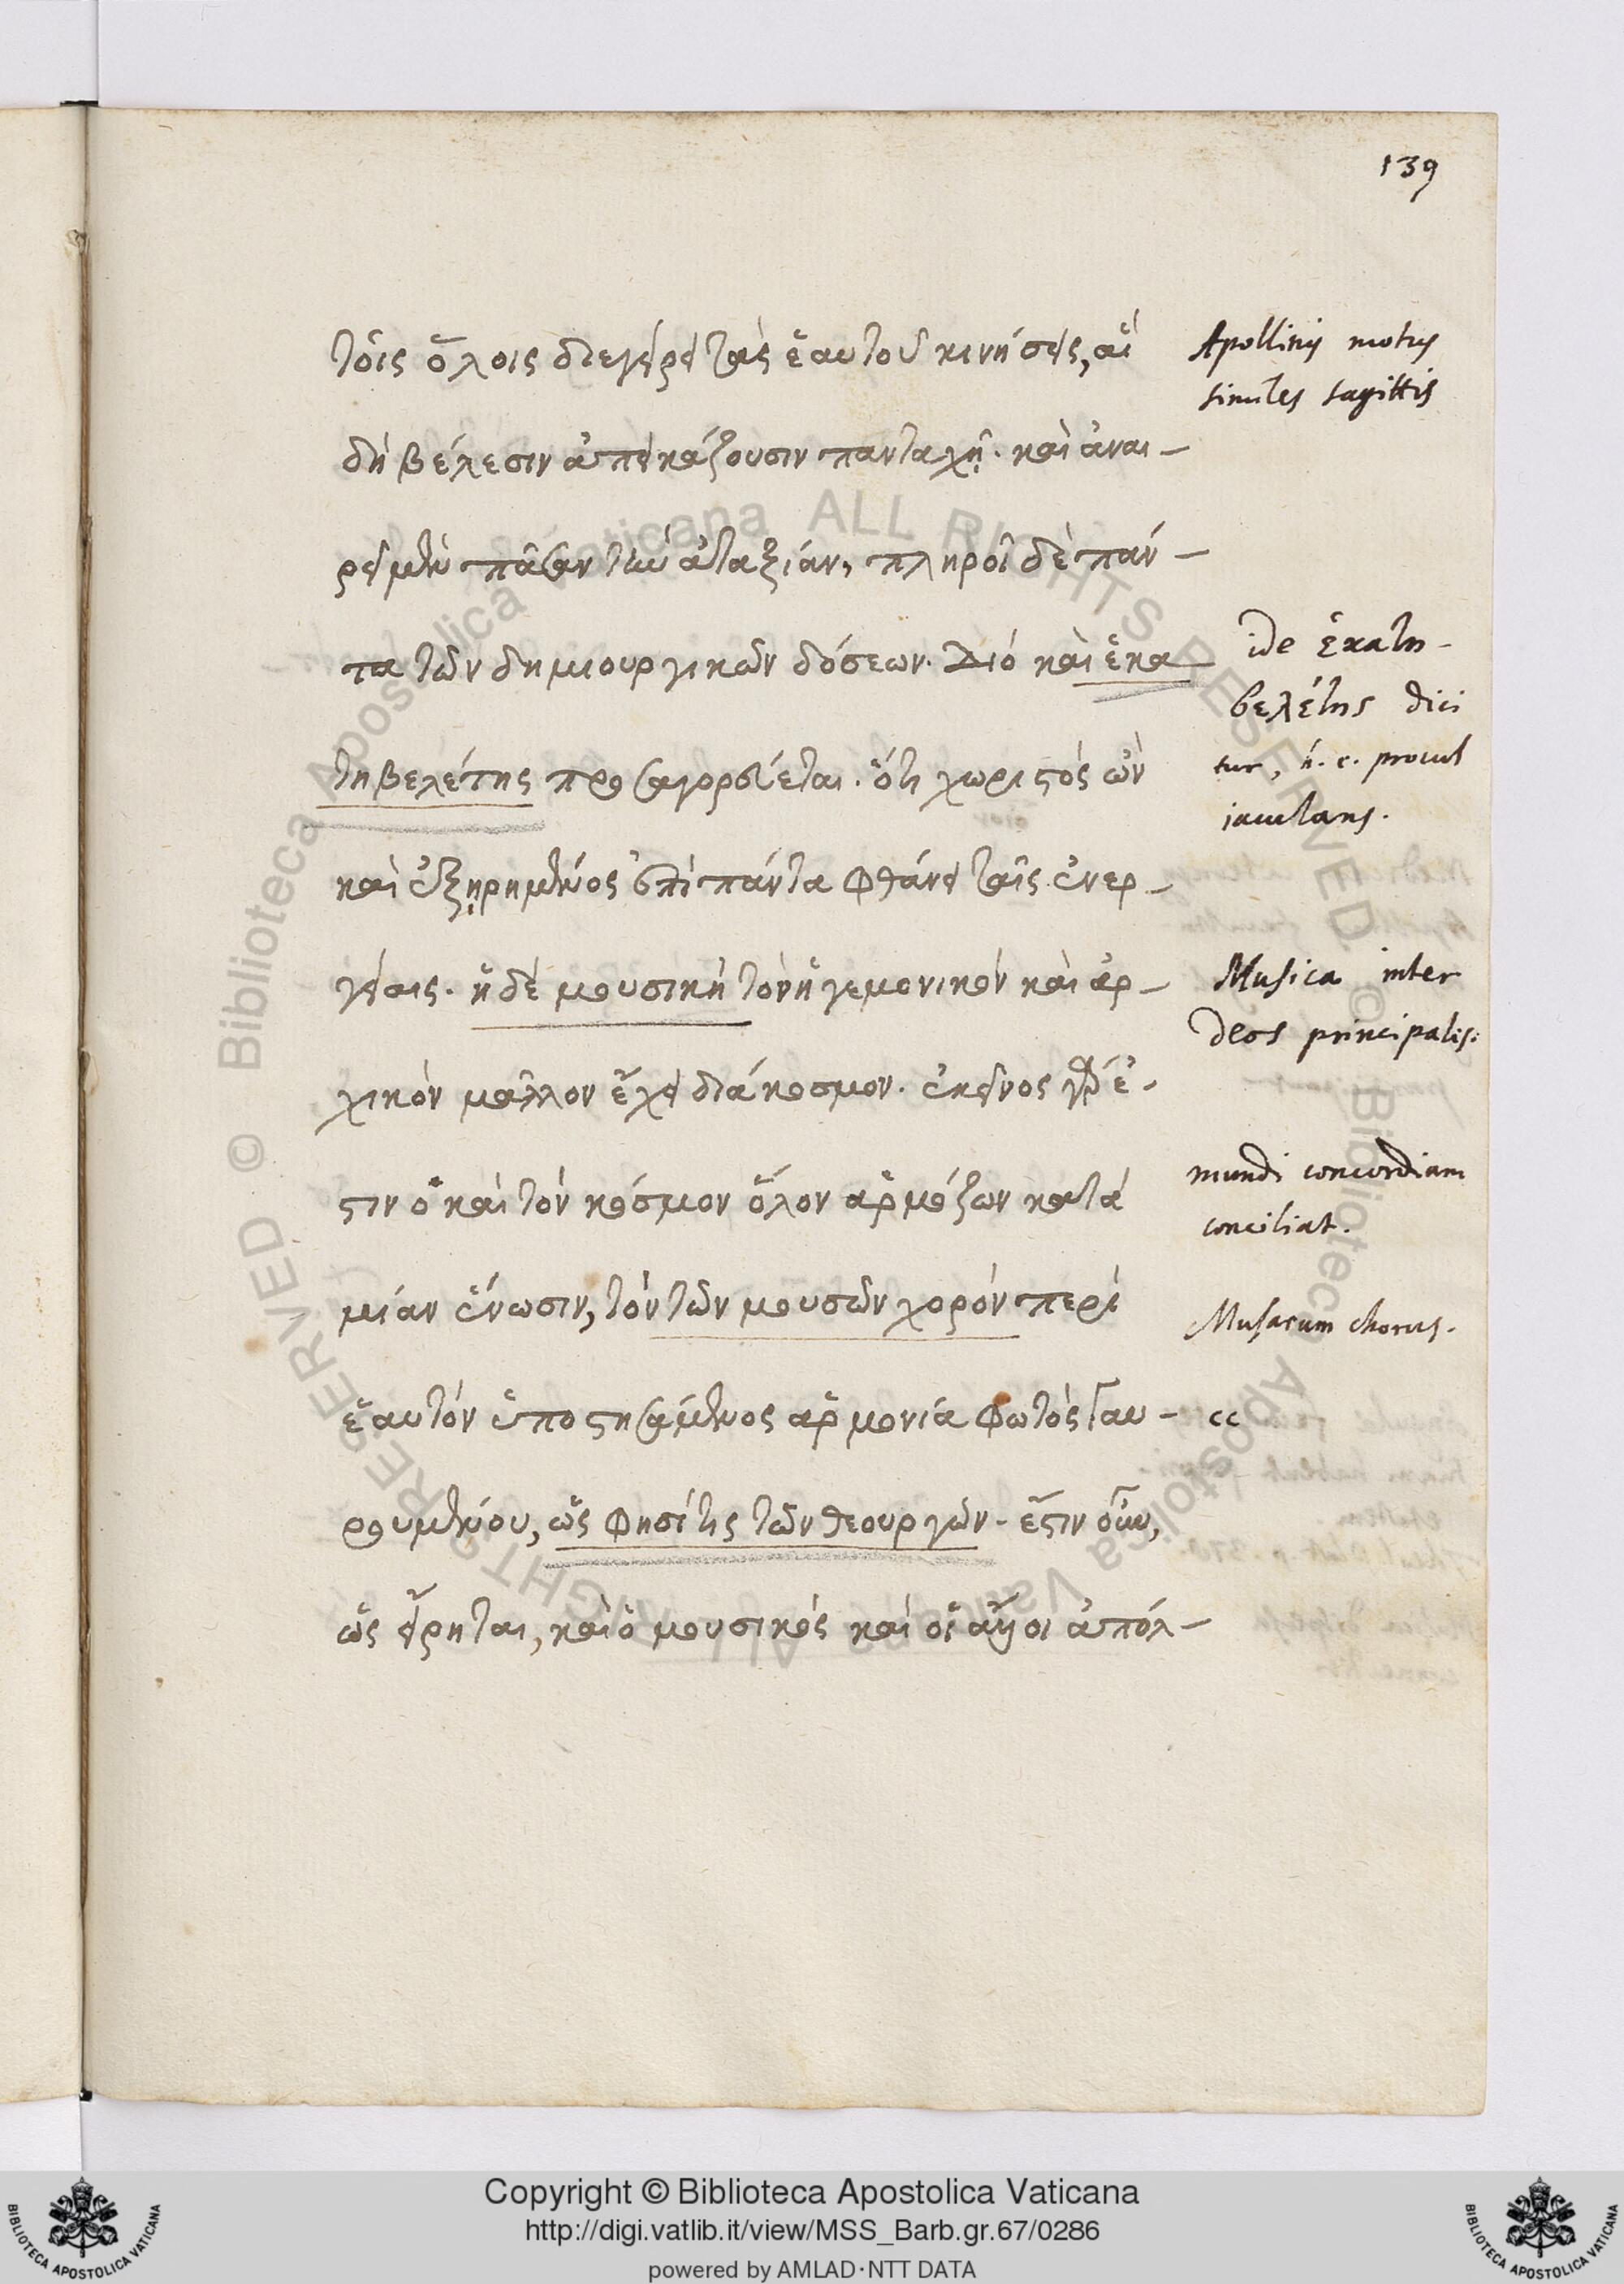 139
τοῖς ὅλοις διεγείρει τὰς ἑαυτοῦ κινήσεις, αἵ
δὴ βέλεσιν ἀπεικάζουσιν πανταχῇ. καὶ ἀναι-
ρεῖ μὲν πᾶσαν τὴν ἀταξίαν, πληροῖ δὲ πάν-
τα τῶν δημιουργικῶν δόσεων. Διό καὶ ἑκα
τηβελέτης προσαγορεύεται. ὅτι χωριστὸς ὢν
καὶ ἐξῃρημένος ἐπὶ πάντα φθάνει ταῖς ἐνερ-
γείαις. ἡ δὲ μουσικὴ τὸν ἡγεμονικὸν καὶ ἀρ-
χικὸν μᾶλλον ἔχει διάκοσμον. ἐκεῖνος γάρ ἐ-
στιν ὁ καὶ τὸν κόσμον ὅλον ἁρμόζων κατὰ
μίαν ἕνωσιν, τὸν τῶν μουσῶν χορόν περὶ
ἑαυτόν ὑποστησάμενος ἁρμονία φωτὸς γαυ-
ρουμένου, ὥς φησί τις τῶν θεουργῶν. ἔστιν οὖν,
ὡς εἴρηται, καὶ ὁ μουσικός καὶ οἱ ἄλλοι ἀπόλ-
Apollinis motus
similes sagittis
ide ἑκατη-
βελέτης dici
tur, h. e. procul
iaculans.
Musica inter
deos principalis.
mundi concordiam
conciliat.
Musarum chorus.
cc
Copyright © Biblioteca Apostolica Vaticana
http://digi.vatlib.it/view/MSS_Barb.gr.67/0286
powered by AMLAD·NTT DATA
BIBLIOTECA APOSTOLICA VATICANA
BIBLIOTECA APOSTOLICA VATICANA
© Biblioteca Apostolica Vaticana ALL RIGHTS RESERVED
© Biblioteca Apostolica Vaticana ALL RIGHTS RESERVED